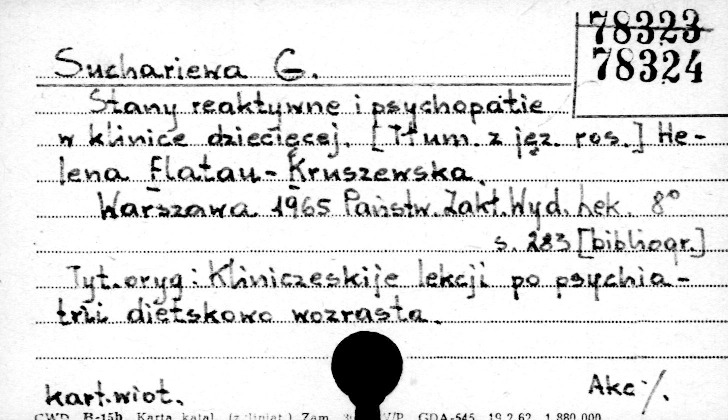 78323
78324
Suchariewa G.
Stany reaktywne i psychopatie
w klinice dziecięcej. [Tłum. z jęz. ros.] He-
lena Flatau-Kruszewska.
Warszawa 1965 Państw. Zakł. Wyd. Lek. 8°
s. 283 [bibliogr.]
Tyt. oryg: Kliniczeskije lekcji po psychia-
trii dietskowo wozrasta.
kart. wiot. Akc ·/.
CWD B-15b Karta katal. (z liniat.) Zam. V/P GDA-545 19.2.62 1.880.000